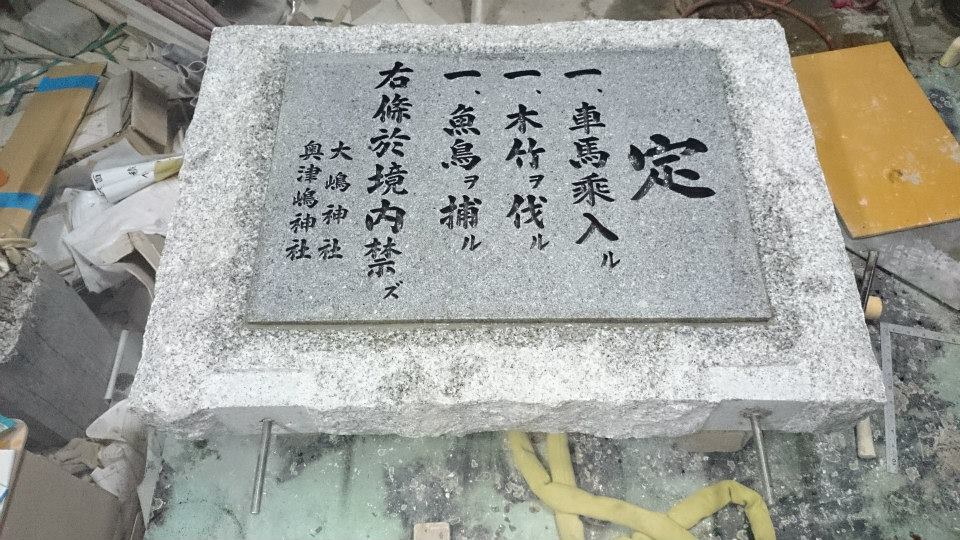 定
一、車馬乗入ル
一、木竹ヲ伐ル
一、魚鳥ヲ捕ル
右條於境内禁ズ
大嶋神社
奥津嶋神社